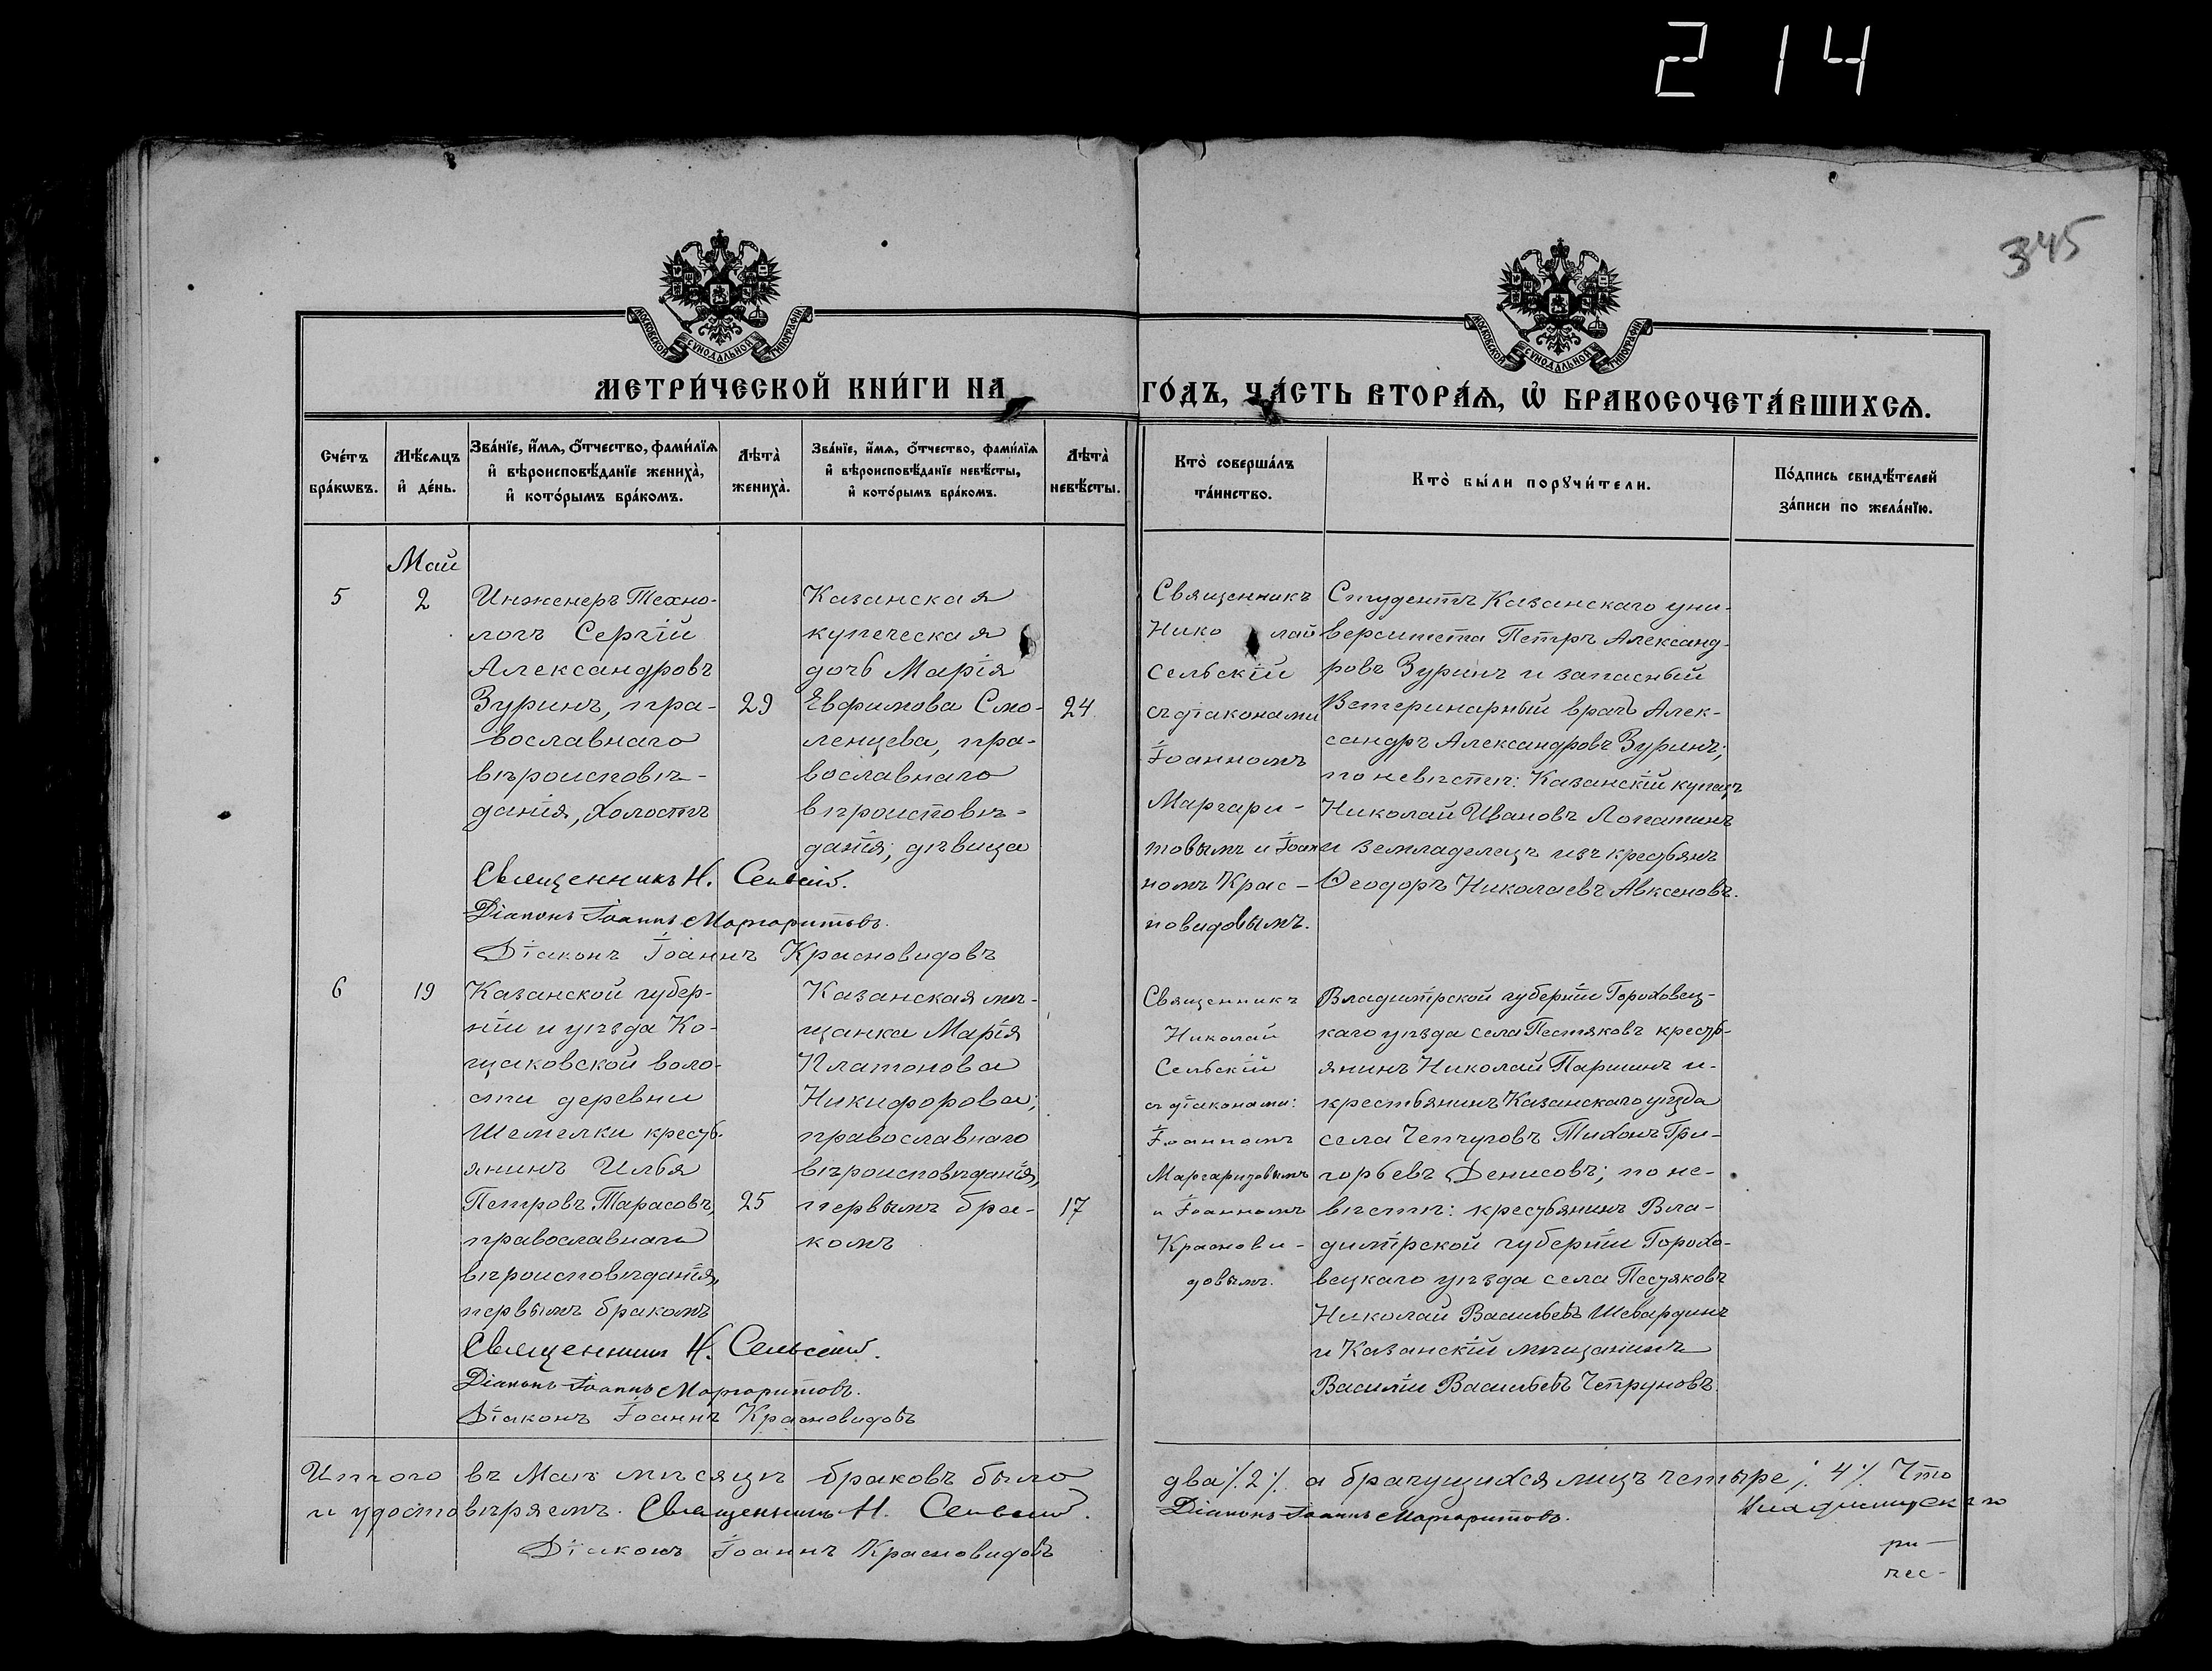 2 14
345
МОСКОВСКОЙ СѴНОДАЛЬНОЙ ТИПОГРАФІИ
МОСКОВСКОЙ СѴНОДАЛЬНОЙ ТИПОГРАФІИ
МЕТРИ́ЧЕСКОЙ КНИ́ГИ НА
ГО́ДЪ, ЧА́СТЬ ВТОРА́Ѧ, Ѡ҆ БРАКОСОЧЕТА́ВШИХСѦ.
Сче́тъ
бра́кѡвъ.
Мѣ́сѧцъ
и҆ де́нь.
Зва́нїе, и҆́мѧ, ѻ҆́тчество, фами́лїѧ
и҆ вѣроисповѣ́данїе жениха̀,
и҆ кото́рымъ бра́комъ.
Лѣта̀
жениха̀.
Зва́нїе, и҆́мѧ, ѻ҆́тчество, фами́лїѧ
и҆ вѣроисповѣ́данїе невѣ́сты,
и҆ кото́рымъ бра́комъ.
Лѣта̀
невѣ́сты.
Кто̀ соверша́лъ
та́инство.
Кто̀ бы́ли порꙋчи́тели.
По́дпись свидѣ́телей
за́писи по жела́нїю.
Май
5
2
Инженеръ Техно-
логъ Сергій
Александровъ
Зуринъ, пра-
вославнаго
вѣроисповѣ-
данія, холостъ
29
Казанская
купеческая
дочь Марія
Евфимова Смо-
ленцева, пра-
вославнаго
вѣроисповѣ-
данія, дѣвица
24
Священникъ Н. Сельскій.
Діаконъ Іоаннъ Маргаритовъ.
Діаконъ Іоаннъ Красновидовъ
Священникъ
Николай
Сельскій
съ діаконами
Іоанномъ
Маргари-
товымъ и Іоан
номъ Крас-
новидовымъ.
Студентъ Казанскаго уни-
верситета Петръ Александ-
ровъ Зуринъ и запасный
Ветеринарный врачъ Алек-
сандръ Александровъ Зуринъ;
по невѣстѣ: Казанскій купецъ
Николай Ивановъ Лопатинъ
и земладелецъ изъ крестьянъ
Ѳеодоръ Николаевъ Авксеновъ.
6
19
Казанской губер-
ніи и уѣзда Ко-
щаковской воло-
сти деревни
Шемелки кресть-
янинъ Илья
Петровъ Тарасовъ,
православнаго
вѣроисповѣданія,
первымъ бракомъ
25
Казанская мѣ-
щанка Марія
Платонова
Никифорова;
православнаго
вѣроисповѣданія,
первымъ бра-
комъ
17
Священникъ Н. Сельскій.
Діаконъ Іоаннъ Маргаритовъ.
Діаконъ Іоаннъ Красновидовъ
Священникъ
Николай
Сельскій
съ діаконами:
Іоанномъ
Маргаритовымъ
и Іоанномъ
Краснови-
довымъ.
Владимірской губерніи Гороховец-
каго уѣзда села Пестяковъ кресть-
янинъ Николай Паршинъ и
крестьянинъ Казанскаго уѣзда
села Чепчуговъ Тихонъ Гри-
горьевъ Денисовъ; по не-
вѣстѣ: крестьянинъ Вла-
димірской губерніи Горохо-
вецкаго уѣзда села Пестяковъ
Николай Васильевъ Шевардинъ
и Казанскій мѣщанинъ
Василій Васильевъ Чепруновъ.
Итого въ Маѣ мѣсяцѣ браковъ было
два ⁒ 2 ⁒ а брачущихся лицъ четыре ⁒ 4 ⁒ Что
и удостовѣряемъ. Священникъ Н. Сельскій.
Діаконъ Іоаннъ Маргаритовъ.
Діаконъ Іоаннъ Красновидовъ
ри-
чес-